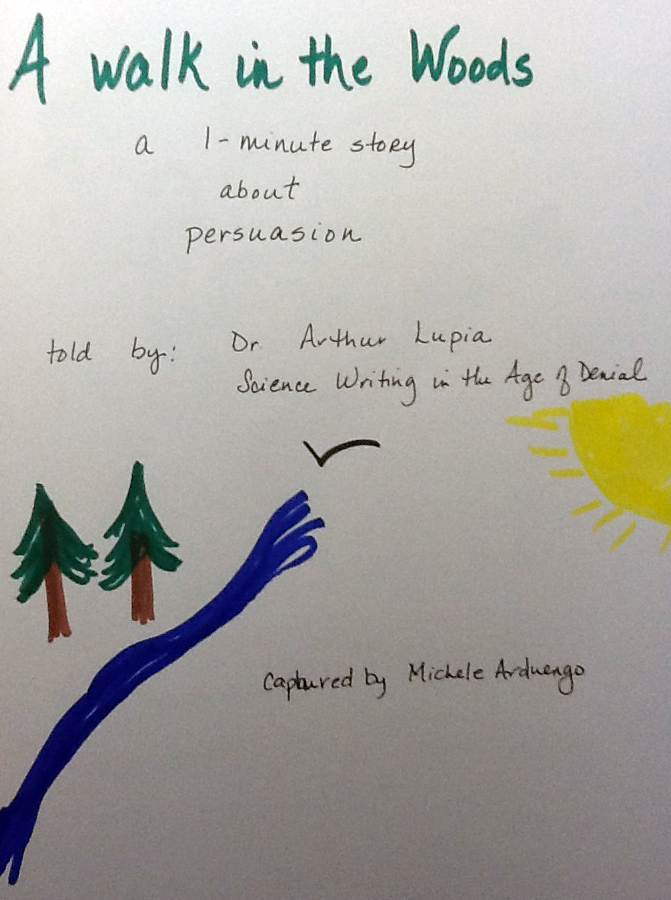 A walk in the Woods
a 1-minute story
about
persuasion
told by: Dr. Arthur Lupia
Science Writing in the Age of Denial
Captured by Michele Arduengo